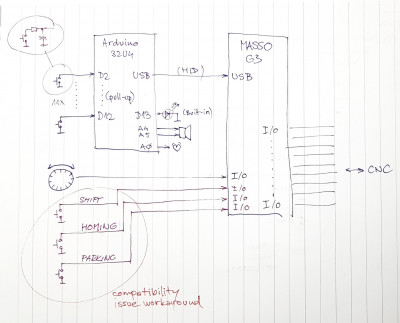 Arduino
32U4
D2
(pull-up)
11x
D12
USB
D13
(Built-in)
A4
A5
A0
(HID)
MASSO
G3
USB
I/O
I/O
CNC
I/O
I/O
I/O
I/O
SHIFT
HOMING
PARKING
compatibility
issue workaround